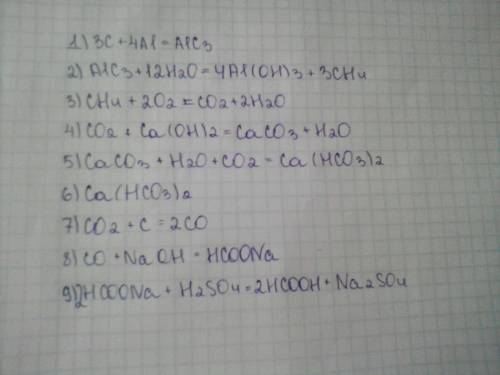 1) 3C + 4Al = AlC3
2) AlC3 + 12H2O = 4Al(OH)3 + 3CH4
3) CH4 + 2O2 = CO2 + 2H2O
4) CO2 + Ca(OH)2 = CaCO3 + H2O
5) CaCO3 + H2O + CO2 = Ca(HCO3)2
6) Ca(HCO3)2
7) CO2 + C = 2CO
8) CO + NaOH = HCOONa
9) 2HCOONa + H2SO4 = 2HCOOH + Na2SO4